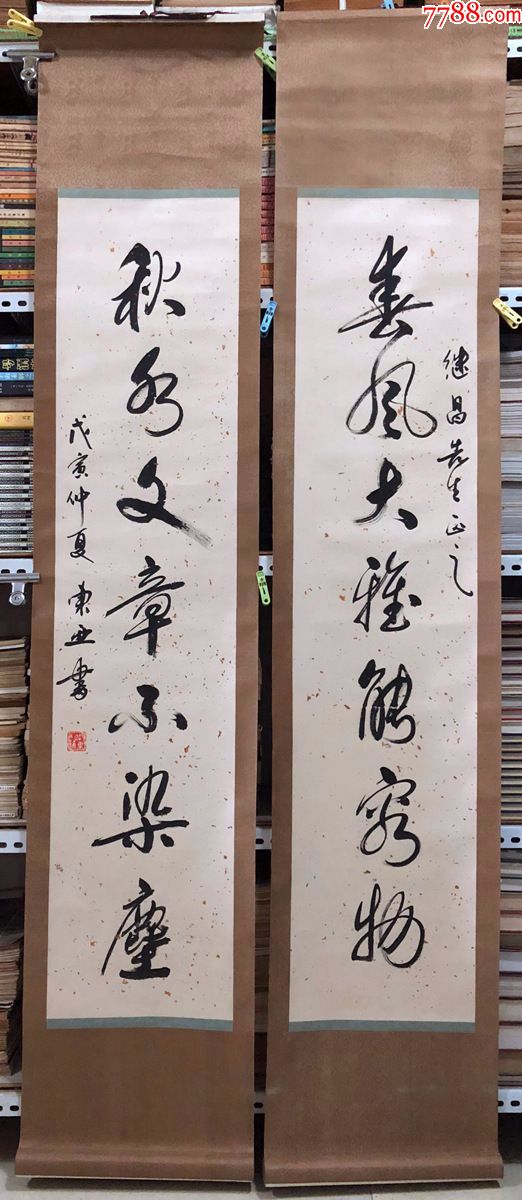 7788.com
春风大雅能容物
继昌先生正之
秋水文章不染塵
戊寅仲夏 東亚書